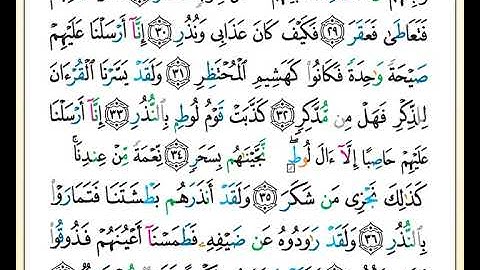 فَتَعَاطَىٰ فَعَقَرَ ٢٩ فَكَيْفَ كَانَ عَذَابِى وَنُذُرِ ٣٠ إِنَّآ أَرْسَلْنَا عَلَيْهِمْ
صَيْحَةً وَٰحِدَةً فَكَانُوا۟ كَهَشِيمِ ٱلْمُحْتَظِرِ ٣١ وَلَقَدْ يَسَّرْنَا ٱلْقُرْءَانَ
لِلذِّكْرِ فَهَلْ مِن مُّدَّكِرٍ ٣٢ كَذَّبَتْ قَوْمُ لُوطٍۭ بِٱلنُّذُرِ ٣٣ إِنَّآ أَرْسَلْنَا
عَلَيْهِمْ حَاصِبًا إِلَّآ ءَالَ لُوطٍۖ نَّجَّيْنَٰهُم بِسَحَرٍ ٣٤ نِّعْمَةً مِّنْ عِندِنَاۚ
كَذَٰلِكَ نَجْزِى مَن شَكَرَ ٣٥ وَلَقَدْ أَنذَرَهُم بَطْشَتَنَا فَتَمَارَوْا۟
بِٱلنُّذُرِ ٣٦ وَلَقَدْ رَٰوَدُوهُ عَن ضَيْفِهِۦ فَطَمَسْنَآ أَعْيُنَهُمْ فَذُوقُوا۟